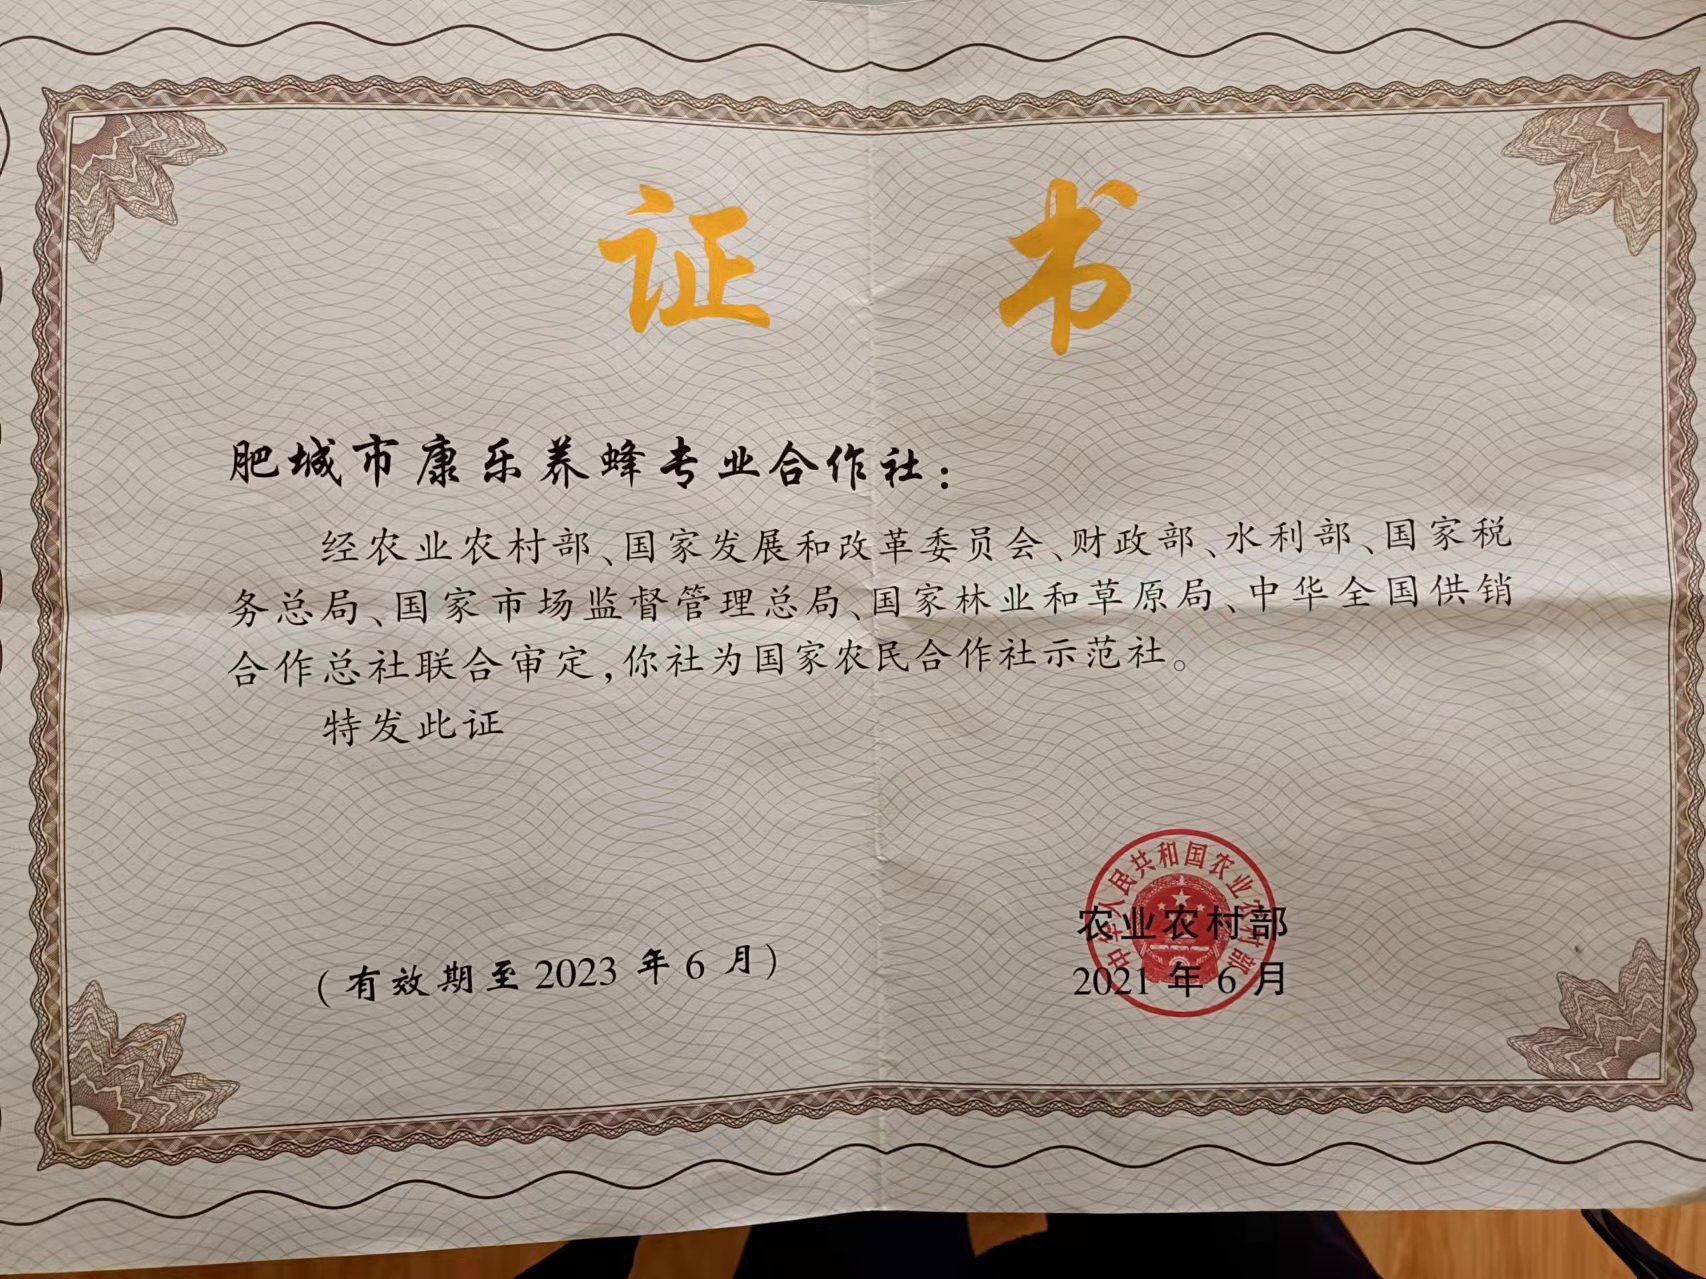 证 书
肥城市康乐养蜂专业合作社：
经农业农村部、国家发展和改革委员会、财政部、水利部、国家税
务总局、国家市场监督管理总局、国家林业和草原局、中华全国供销
合作总社联合审定，你社为国家农民合作社示范社。
特发此证
中华人民共和国农业农村部
农业农村部
（有效期至2023年6月）
2021年6月